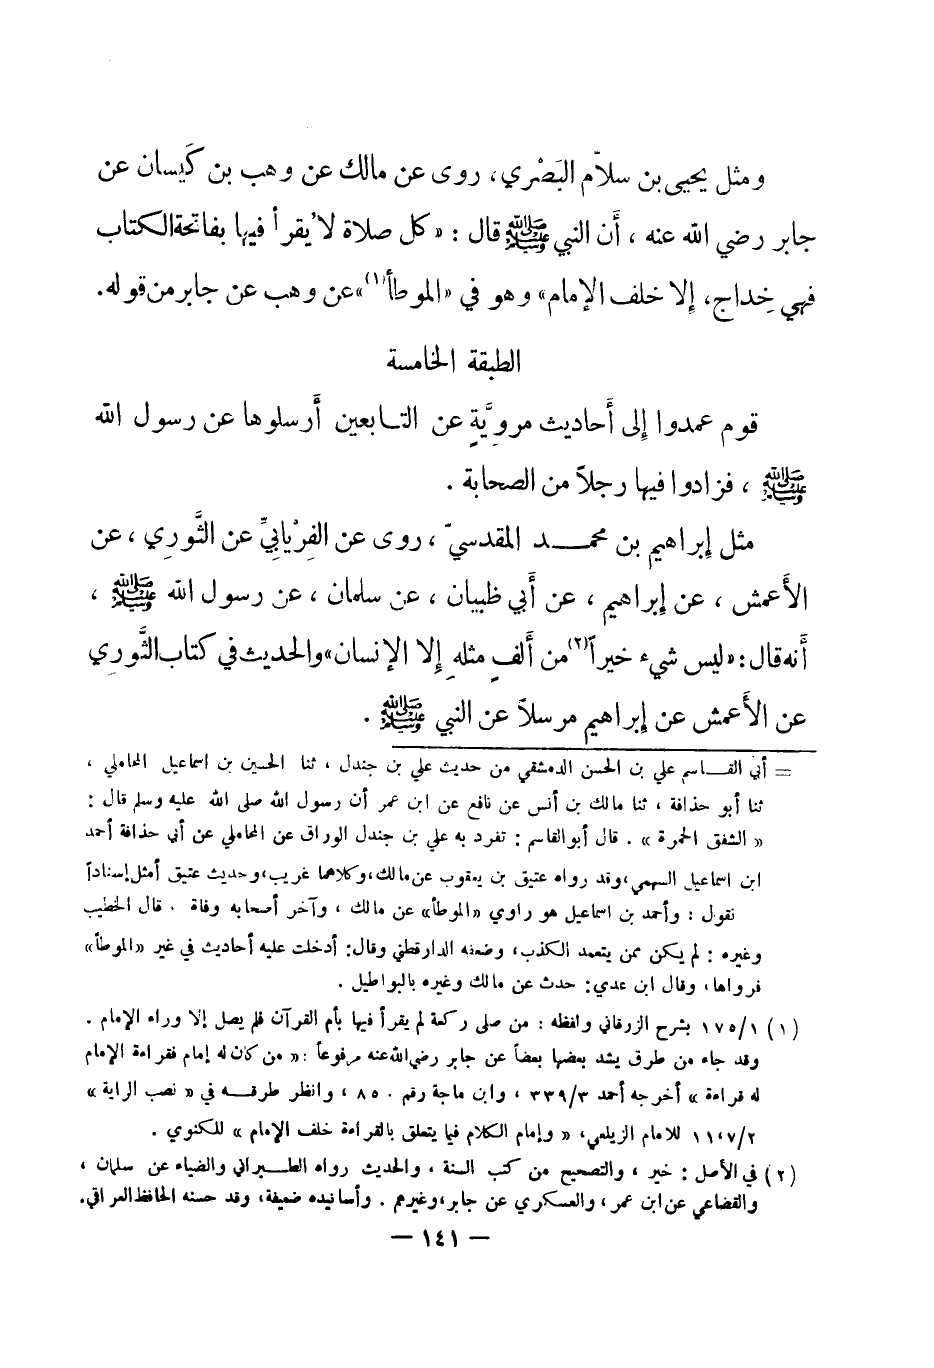 ومثل يحيى بن سلاّم البَصْري، روى عن مالك عن وهب بن كَيسان عن
جابر رضي الله عنه ، أن النبي ﷺ قال : « كل صلاة لا يُقرأ فيها بفاتحة الكتاب
فهي خِداج، إلا خلف الإمام» وهو في «الموطأ(١)» عن وهب عن جابر من قوله.
الطبقة الخامسة
قوم عمدوا إلى أحاديث مرويَّةٍ عن التابعين أرسلوها عن رسول الله
ﷺ ، فزادوا فيها رجلاً من الصحابة .
مثل إبراهيم بن محمد المقدسيّ ، روى عن الفِرْيابيِّ عن الثَّوري ، عن
الأعمش ، عن إبراهيم ، عن أبي ظبيان ، عن سلمان ، عن رسول الله ﷺ ،
أنه قال : «ليس شيء خيراً(٢) من ألفٍ مثلهِ إلا الإنسان» والحديث في كتاب الثَّوري
عن الأعمش عن إبراهيم مرسلاً عن النبي ﷺ .
= أبي القاسم علي بن الحسن الدمشقي من حديث علي بن جندل ، ثنا الحسين بن اسماعيل المحاملي ،
ثنا أبو حذافة ، ثنا مالك بن أنس عن نافع عن ابن عمر أن رسول الله صلى الله عليه وسلم قال :
« الشفق الحمرة » . قال أبو القاسم : تفرد به علي بن جندل الوراق عن المحاملي عن أبي حذافة أحمد
ابن اسماعيل السهمي ،وقد رواه عتيق بن يعقوب عن مالك، وكلاهما غريب، وحديث عتيق أمثل إسناداً
نقول : وأحمد بن اسماعيل هو راوي «الموطأ» عن مالك ، وآخر أصحابه وفاة . قال الخطيب
وغيره : لم يكن ممن يتعمد الكذب، وضعفه الدارقطني وقال: أدخلت عليه أحاديث في غير «الموطأ»
فرواها، وقال ابن عدي: حدث عن مالك وغيره بالبواطيل .
(١) ١٧٥/١ بشرح الزرقاني ولفظه : من صلى ركعة لم يقرأ فيها بأم القرآن فلم يصل إلا وراء الإمام .
وقد جاء من طرق يشد بعضها بعضاً عن جابر رضي الله عنه مرفوعاً : « من كان له إمام فقراءة الإمام
له قراءة » أخرجه أحمد ٣٣٩/٣ ، وابن ماجة رقم ٨٥٠ ، وانظر طرقه في « نصب الراية »
١١،٧/٢ للامام الزيلعي، « وإمام الكلام فيما يتعلق بالقراءة خلف الإمام » للكنوي .
(٢) في الأصل : خير ، والتصحيح من كتب السنة ، والحديث رواه الطبراني والضياء عن سلمان ،
والقضاعي عن ابن عمر ، والعسكري عن جابر ، وغيرهم . وأسانيده ضعيفة، وقد حسنه الحافظ العراقي.
— ١٤١ —